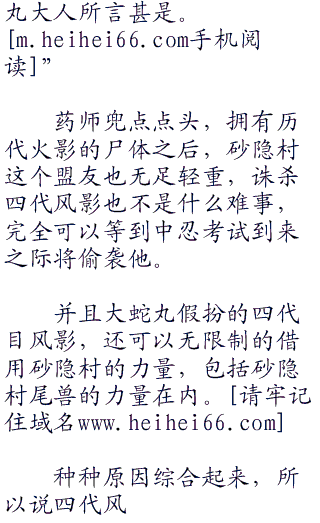 丸大人所言甚是。
[m.heihei66.com手机阅
读]”
药师兜点点头，拥有历
代火影的尸体之后，砂隐村
这个盟友也无足轻重，诛杀
四代风影也不是什么难事，
完全可以等到中忍考试到来
之际将偷袭他。
并且大蛇丸假扮的四代
目风影，还可以无限制的借
用砂隐村的力量，包括砂隐
村尾兽的力量在内。[请牢记
住域名www.heihei66.com]
种种原因综合起来，所
以说四代风